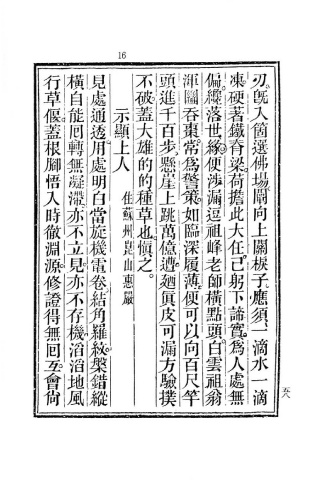 16
刃。旣入箇選佛場。闢向上關棙子。應須一滴水一滴
凍。硬著鐵脊梁。荷擔此大任。己躬下諦實。爲人處無
偏。纔落世緣。便涉漏逗。祖峰老師橫點頭。白雲祖翁
渾圇吞棗。常爲警策。如臨深履薄。便可以向百尺竿
頭進千百步。懸崖上跳萬億遭。廻眞皮可漏。方驗撲
不破。蓋大雄的的種草也。愼之。
示顯上人 住蘇州崑山惠嚴
見處通透。用處明白。當旋機電卷。結角羅紋。盤錯縱
橫。自能回轉無凝滯。亦不立見。亦不存機。滔滔地風
行草偃。蓋根脚悟入時徹淵源。修證得無回互。會尙
五八